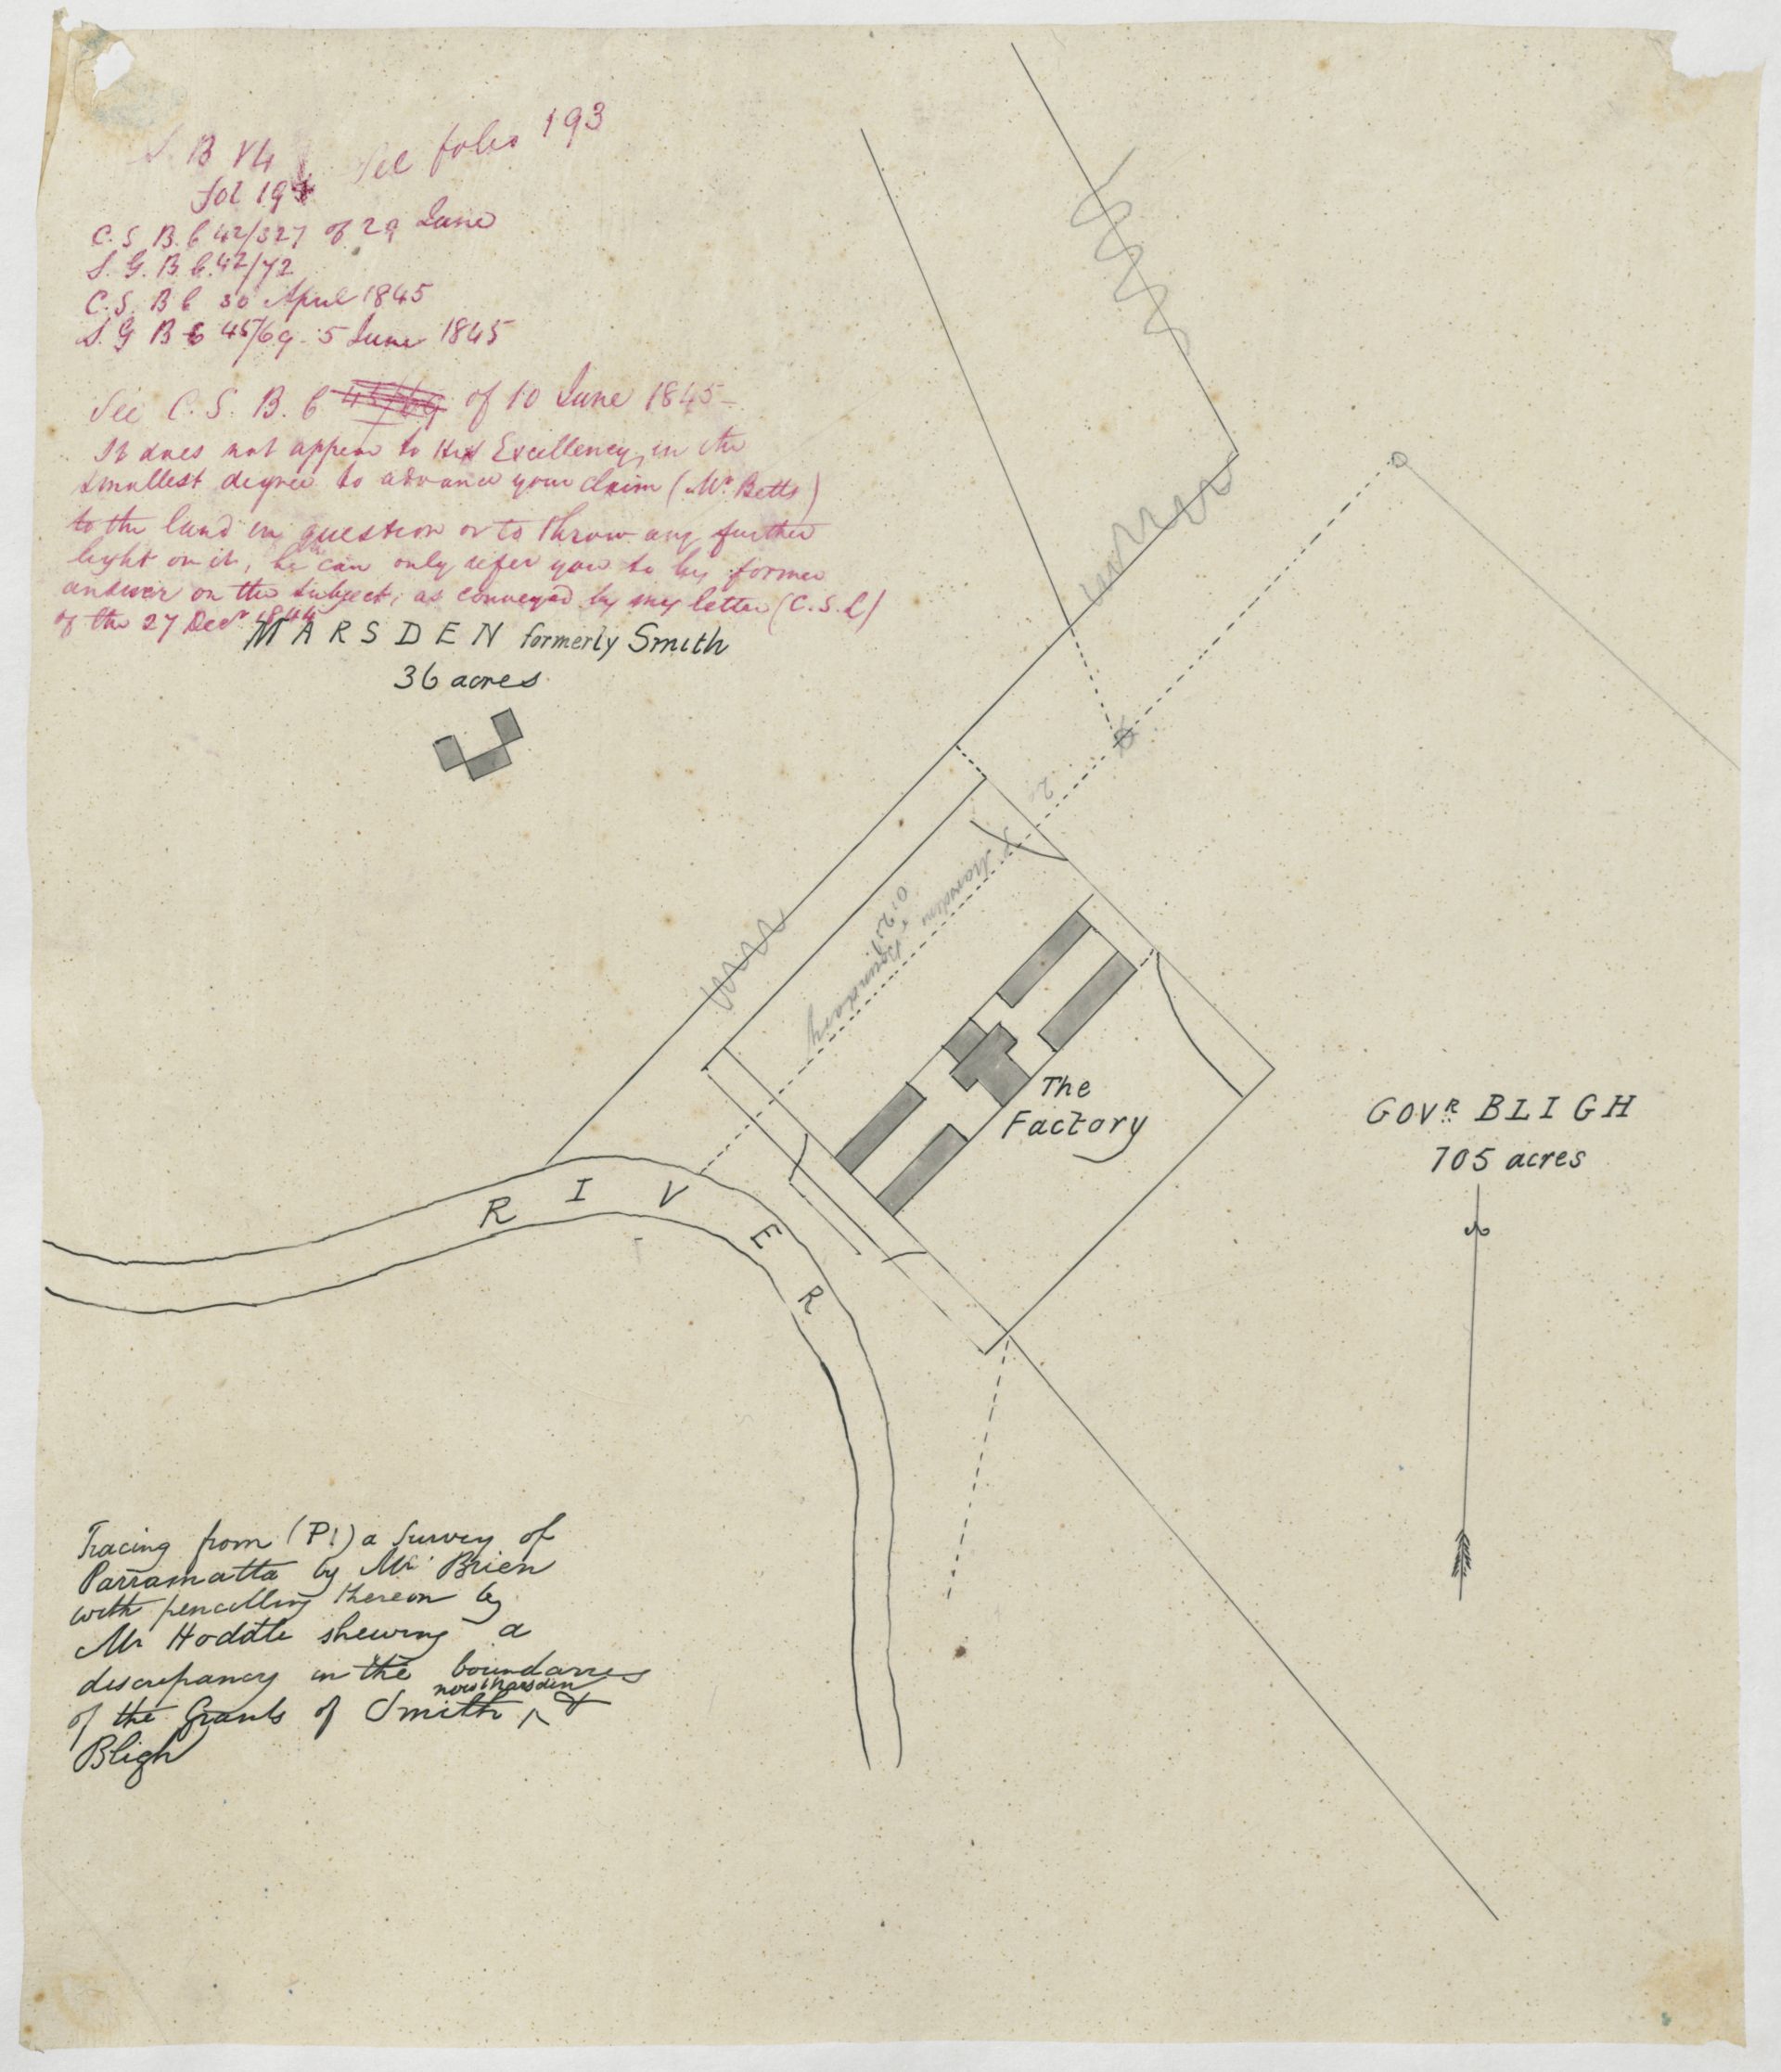 S. B V4 See folio 193
Fol 194
C. S B. C 42/327 of 29 June
S. G. B C. 42/72
C. S. B C 30 April 1845
S. G B C 45/69 5 June 1845
See C. S. B. C 45/69 of 10 June 1845
It does not appear to His Excellency, in the
smallest degree to advance your claim (Mr. Betts)
to the land in question or to throw any further
light on it, he can only refer you to his former
answer on the subject, as conveyed by my letter (C. S. L)
of the 27 Decr. 1844
MARSDEN formerly Smith
36 acres
2
Marsdens
Boundary
The
Factory
GOVR. BLIGH
705 acres
RIVER
Tracing from (P!) a Survey of
Parramatta by Mr. Brien
with pencilling thereon by
Mr Hoddle shewing a
discrepancy in the boundaries
now Marsden
of the Grants of Smith ^ &
Bligh